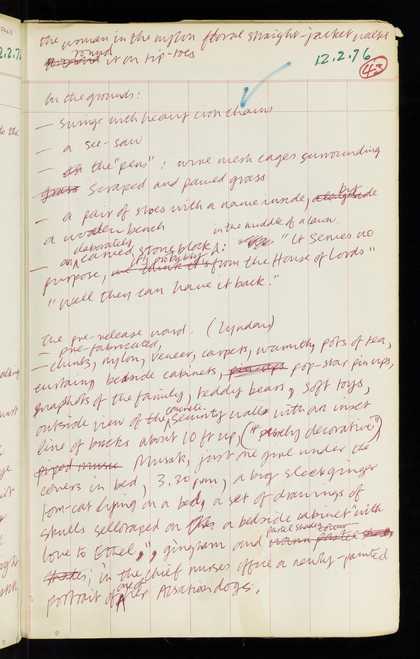 the woman in the nylon floral straight-jacket walks
round it on tip-toes
12.2.76
43
In the grounds:
— swings with heavy iron chains
— a see-saw
— the "pens": wire mesh cages surrounding
grass scraped and paved grass
— a pair of shoes with a name inside, by
a wooden bench
in the middle of a lawn.
elaborately
— a carved stone block: "It serves no
it's probably
purpose, we think it's from the House of Lords"
"Well they can have it back."
The pre-release ward. (Lyndan)
— pre-fabricated,
— chintz, nylon, veneer, carpets, warmth, pots of tea,
curtains, bedside cabinets, pop-star pin ups,
snapshots of the family, teddy bears, soft toys,
concrete
outside view of the security walls with an inset
line of bricks about 10 ft up, ("purely decorative")
piped music Musak, just one girl under the
covers in bed, 3.30 pm, a big sleek ginger
tom-cat lying on a bed, a set of drawings of
skulls sellotaped on a bedside cabinet "with
love to Ethel,", gingham and
in the chief nurses office a newly-painted
one of
portrait of her Alsation dogs.